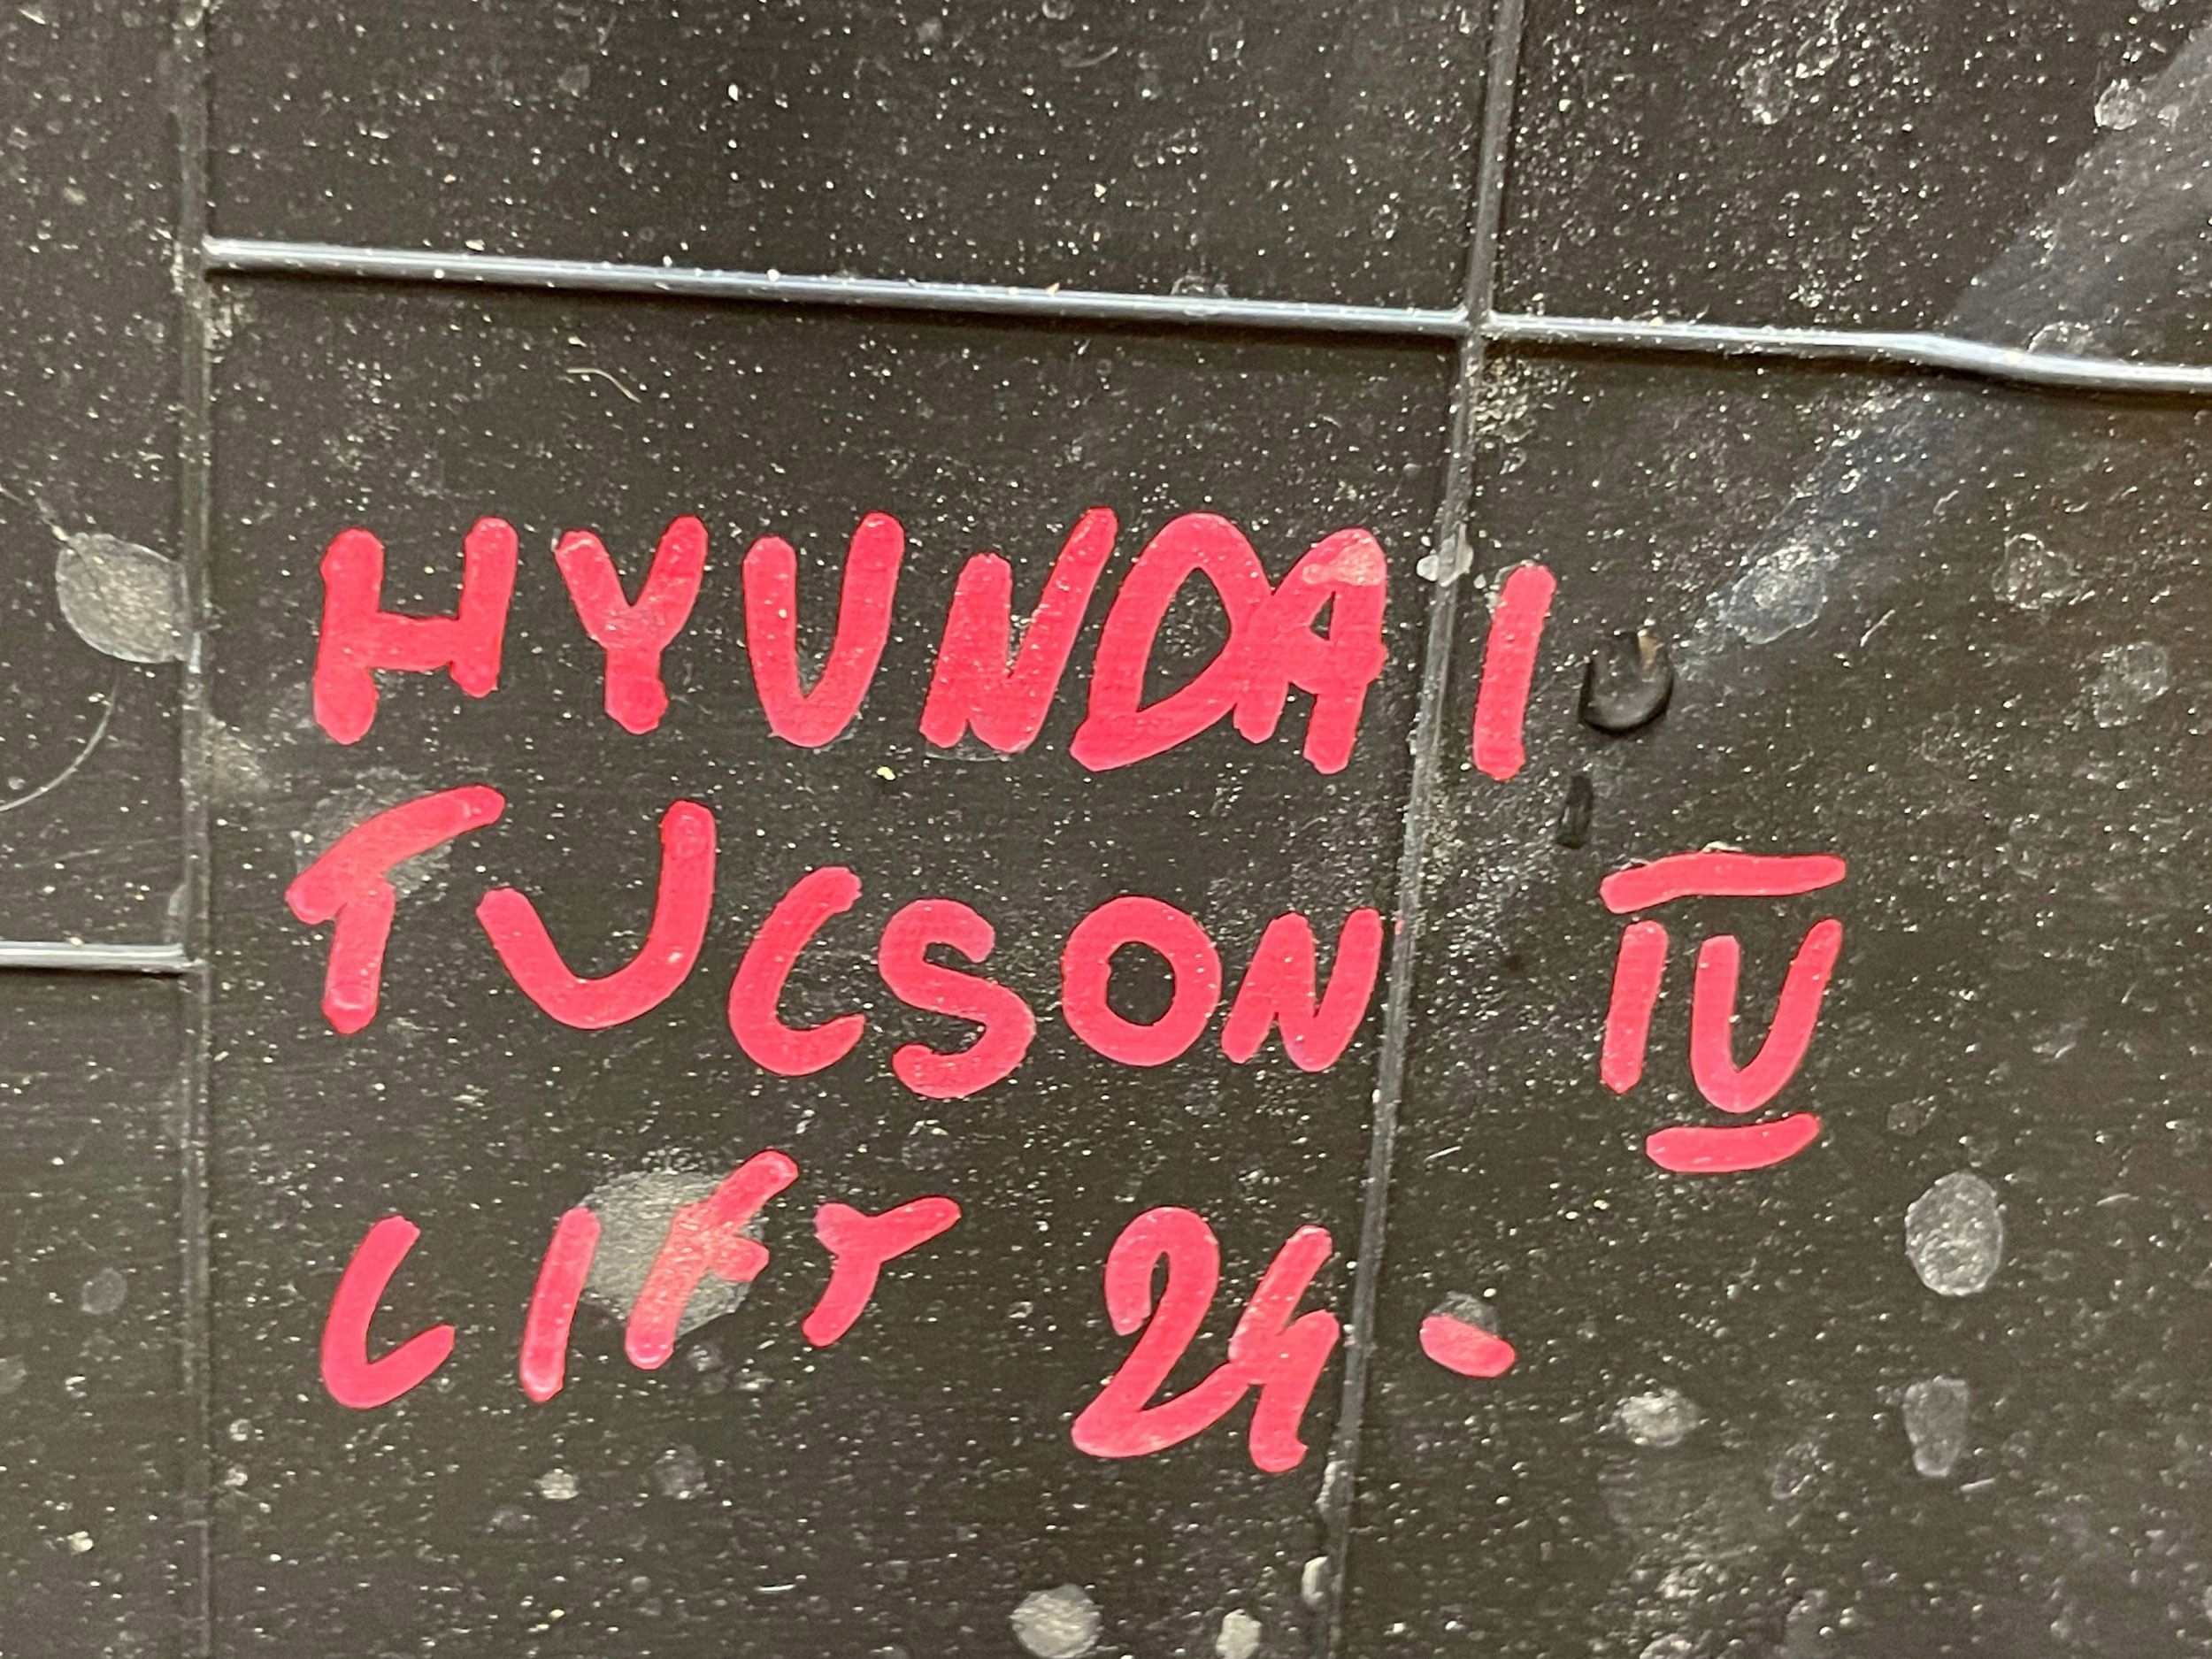 HYUNDAI
TUCSON IV
LIFT 24-